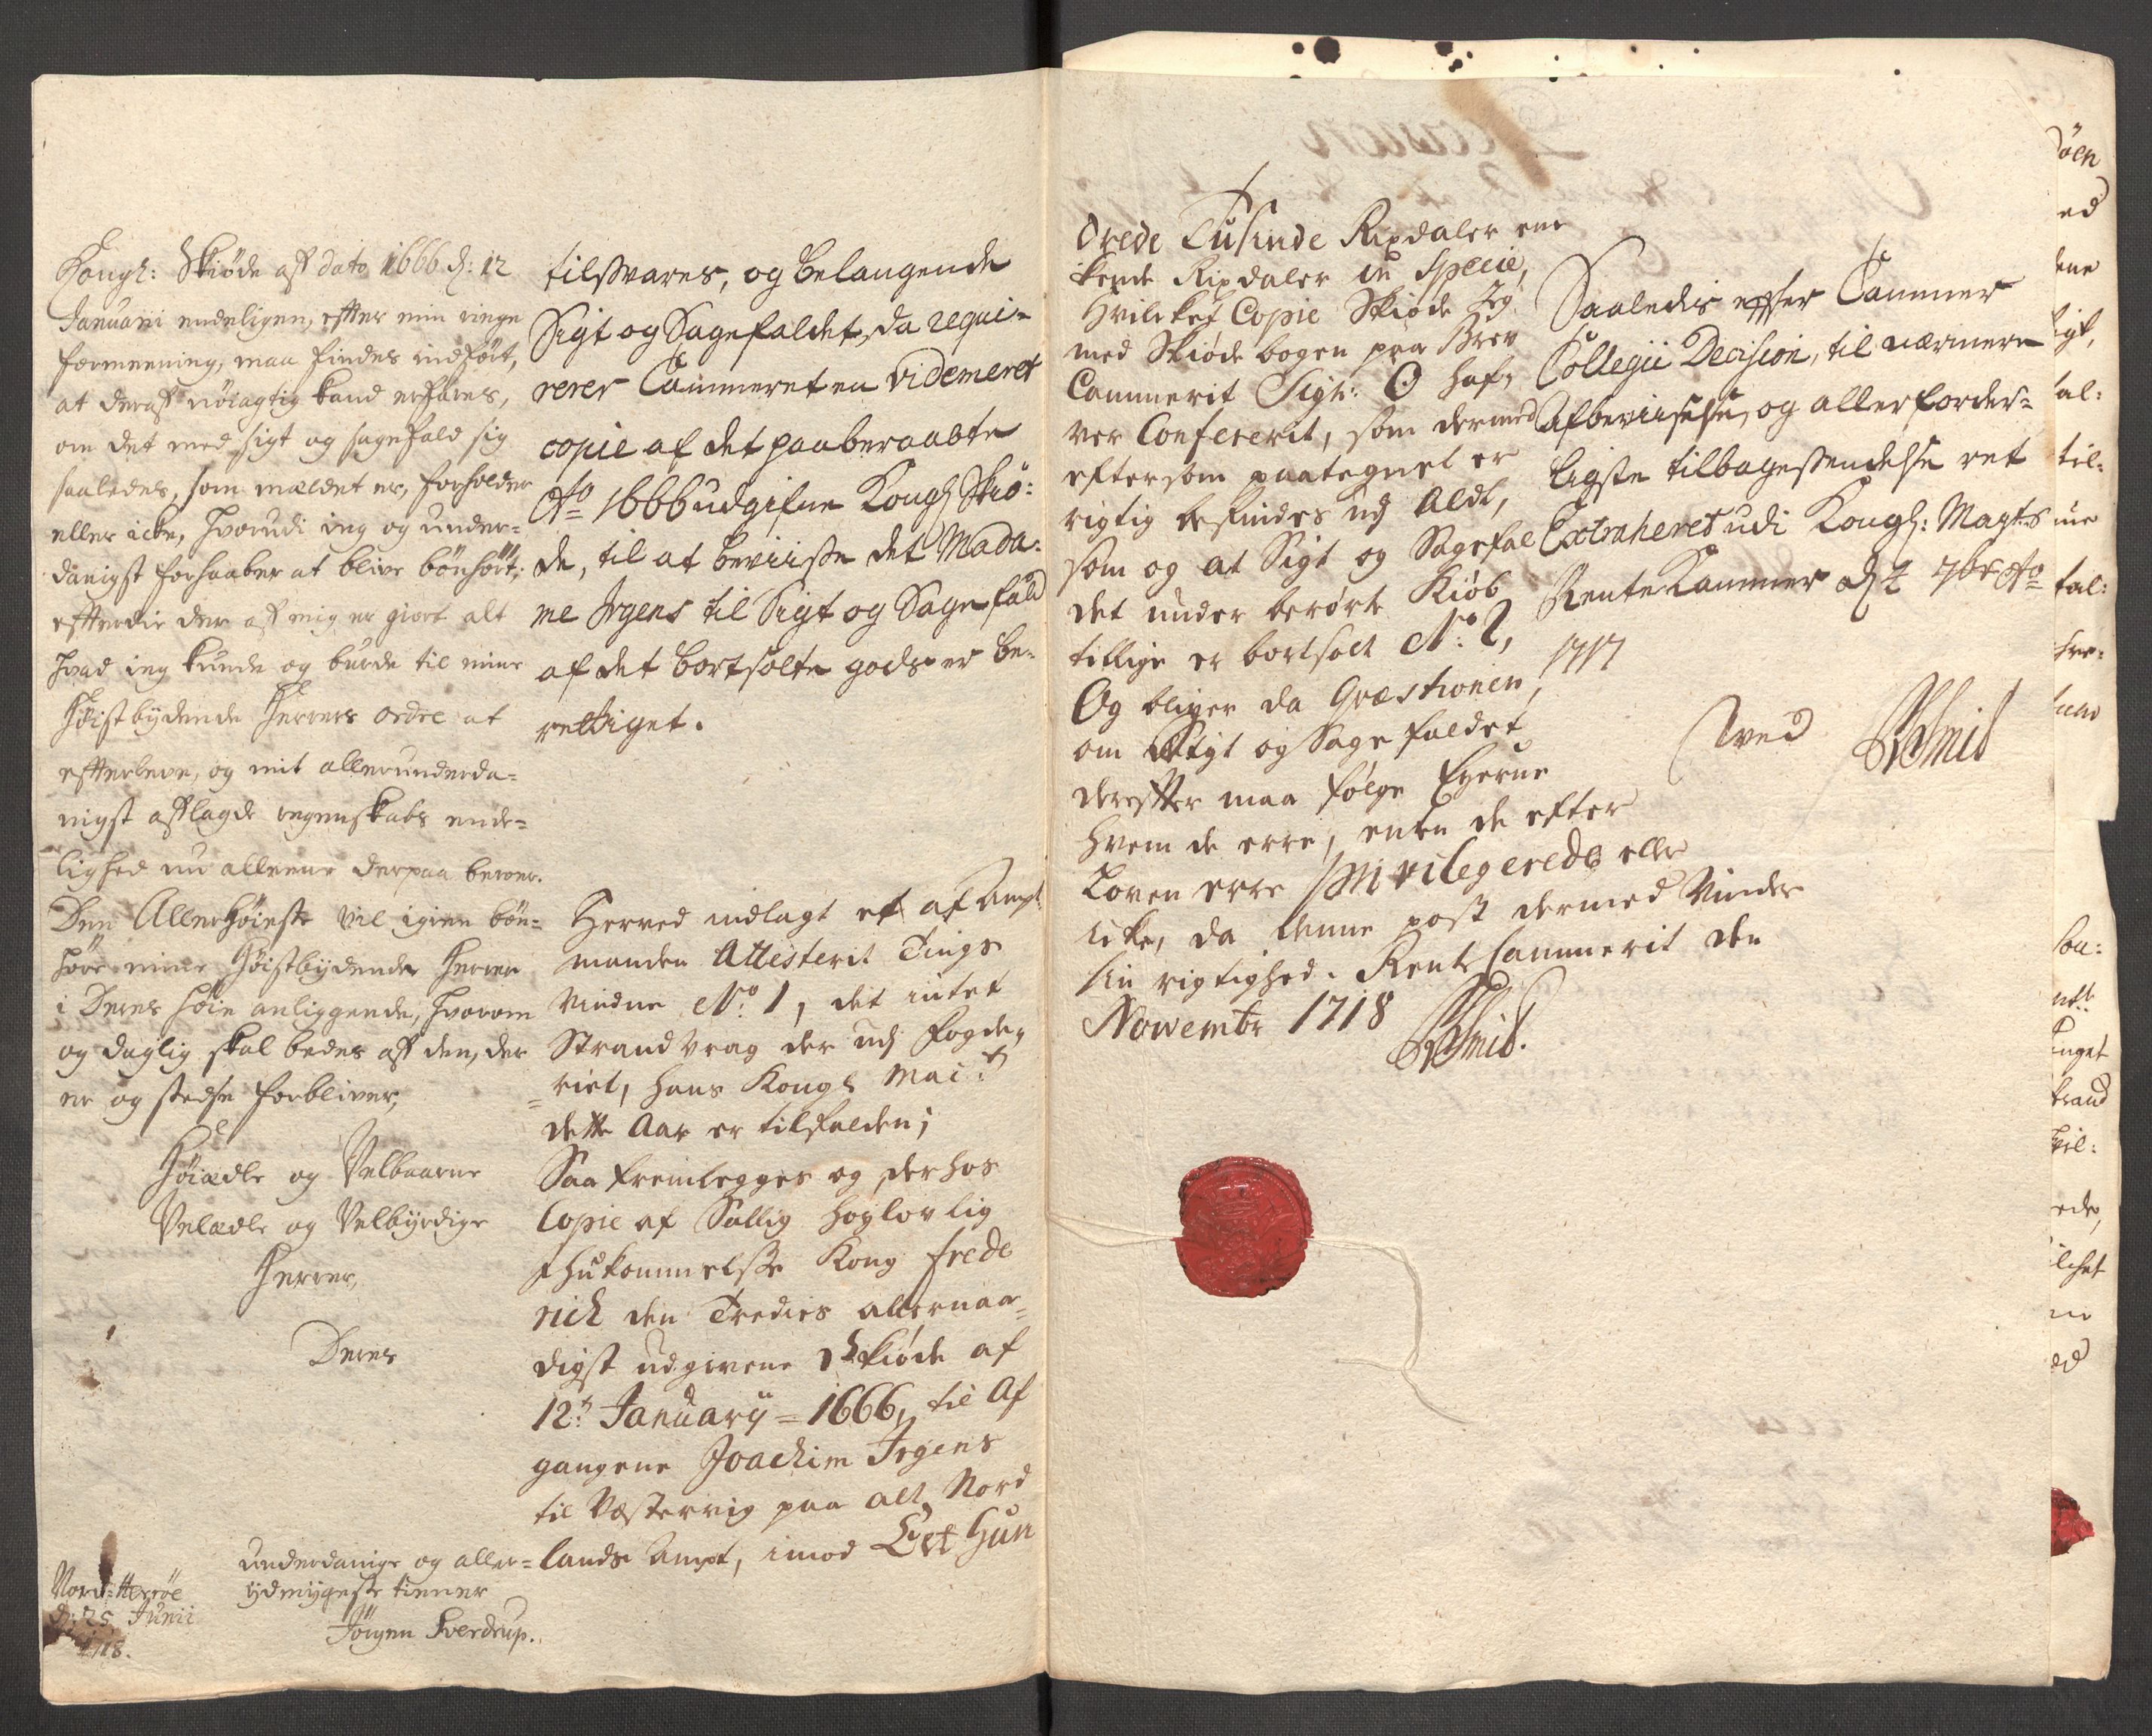 Kongl: Skiøde aff dato 1666 d: 12
Januarii endeligen, efter min ringe
formeening, maa findes indført,
at deraff nöiagtig kand erfares,
om det med sigt og sagefald sig
saaledes, som meldet er, forholder
eller icke, hvorudi ieg og under-
danigst forhaaber at blive bönhört;
efterdi der aff mig er giort alt
hvad ieg kunde og burde til mine
Höistbydende Herrers ordre at
efterleve, og mit allerunderda-
nigst afflagde regenskabs ende-
lighed nu alleene derpaa beroer.
Den Allerhöieste vil igien bön-
höre mine Höistbydende Herrer
i Deres höie anliggende, hvorom
og daglig skal bedes aff den, der
er og stedse forbliver,
Höiædle og Velbaarne
Velædle og Velbyrdige
Herrer,
Deres
underdanige og aller-
ydmygeste tiener
Jörgen Sverdrup.
Nord-Herröe
d: 25 Junii
1718.
tilsvares, og belangende
Sigt og Sagefaldet, da requi-
rerer Cammeret en videmeret
copie af det paaberaabte
Ao 1666 udgifne Kongl. Skiö-
de, til at beviisse det Mada-
me Irgens til Sigt og Sagefald
af det bortsolte gods er be-
rettiget.
Herved indlagt et af Ampt
manden Attesterit Tings
vindne No 1, det intet
Strandvrag der udj fogde-
riet, hans Kongl Mait
dette Aar er tilfalden;
Saa fremlegges og derhos
Copie af Sallig høylovlig
Ihukommelsse Kong frede
rich den Tredies allernaa-
digst udgivene Skiøde af
12t January 1666, til Af
gangene Joachim Irgens
til Vestervig paa alt Nord
lands Ampt, imod Et Hun
drede Tusinde Rixdaler een
kende Rixdaler in Specie,
hvilcket Copie Skiøde Jeg
med Skiøde bogen paa Brev
Cammerit Sign: O haf-
ver Confererit, som dermed
eftersom paategnet er
rigtig befindes udj Aldt,
som og at Sigt og Sagefal
det under berørte Kiøb
tillige er bortsolt No: 2,
Og bliver da Qvæstionen
om Sigt og Sagefaldet
derefter maa følge Eyerne
hvem de erre, enten de efter
Loven erre privilegerede eller
icke, da denne post dermed vinder
sin rigtighed. Rente Cammerit den
Novembr 1718
RSmid.
Saaledis efter Cammer
Collegii Decision, til nærmere
Afbeviiselse, og allerforder-
ligste tilbagesendelse ret
Extraheret udi Kongl: Mayts
Rente Kammer d 2 7br Ao
1717
Tved RSmid